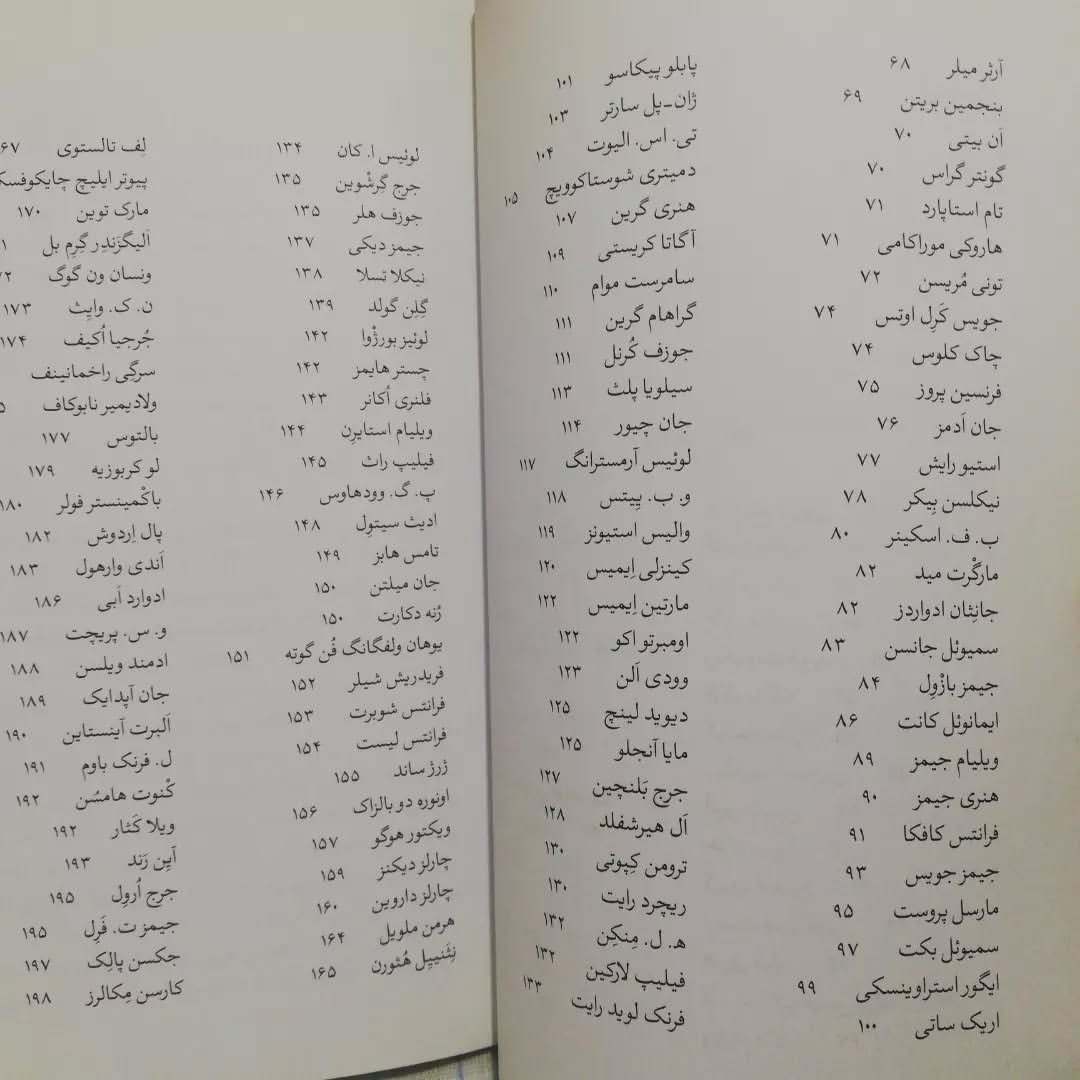 آرثر میلر ۶۸
بنجمین بریتن ۶۹
اَن بیتی ۷۰
گونتر گراس ۷۰
تام استاپارد ۷۱
هاروکی موراکامی ۷۱
تونی مُریسن ۷۲
جویس کَرِل اوتس ۷۴
چاک کلوس ۷۴
فرنسین پروز ۷۵
جان اَدمز ۷۶
استیو رایش ۷۷
نیکلسن بِیکر ۷۸
ب. ف. اسکینر ۸۰
مارگْرت مید ۸۲
جانِثان ادواردز ۸۲
سمیوئل جانسن ۸۳
جیمز بازْوِل ۸۴
ایمانوئل کانت ۸۶
ویلیام جیمز ۸۹
هنری جیمز ۹۰
فرانتس کافکا ۹۱
جیمز جویس ۹۳
مارسل پروست ۹۵
سمیوئل بکت ۹۷
ایگور استراوینسکی ۹۹
اریک ساتی ۱۰۰
پابلو پیکاسو ۱۰۱
ژان-پل سارتر ۱۰۳
تی. اس. الیوت ۱۰۴
دمیتری شوستاکوویچ ۱۰۵
هنری گرین ۱۰۷
آگاتا کریستی ۱۰۹
سامرست موام ۱۱۰
گراهام گرین ۱۱۱
جوزف کُرنل ۱۱۱
سیلویا پلث ۱۱۳
جان چیور ۱۱۴
لوئیس آرمسترانگ ۱۱۷
و. ب. ییتس ۱۱۸
والیس استیونز ۱۱۹
کینزلی اِیمیس ۱۲۰
مارتین اِیمیس ۱۲۲
اومبرتو اکو ۱۲۲
وودی اَلن ۱۲۳
دیوید لینچ ۱۲۵
مایا آنجلو ۱۲۵
جرج بَلنچین ۱۲۷
اَل هیرشفلد ۱۲۸
ترومن کِپوتی ۱۳۰
ریچرد رایت ۱۳۰
ه. ل. مِنکِن ۱۳۲
فیلیپ لارکین ۱۳۲
فرنک لوید رایت ۱۳۳
لوئیس ا. کان ۱۳۴
جرج گِرشْوین ۱۳۵
جوزف هلر ۱۳۵
جیمز دیکی ۱۳۷
نیکلا تسلا ۱۳۸
گِلِن گولد ۱۳۹
لوئیز بورژْوا ۱۴۲
چستر هایمز ۱۴۲
فلنری اُکانر ۱۴۳
ویلیام استایرِن ۱۴۴
فیلیپ راث ۱۴۵
پ. گ. وودهاوس ۱۴۶
ادیث سیتوِل ۱۴۸
تامس هابز ۱۴۹
جان میلتن ۱۵۰
رُنه دکارت ۱۵۰
یوهان ولفگانگ فُن گوته ۱۵۱
فریدریش شیلر ۱۵۲
فرانتس شوبرت ۱۵۳
فرانتس لیست ۱۵۴
ژرژ ساند ۱۵۵
اونوره دو بالزاک ۱۵۶
ویکتور هوگو ۱۵۷
چارلز دیکنز ۱۵۹
چارلز داروین ۱۶۰
هرمن ملویل ۱۶۴
نِثَنییِل هُثورن ۱۶۵
لِف تالستوی ۶۷
پیوتر ایلیچ چایکوفسک
مارک توین ۱۷۰
اَلیگزَندِر گِرِم بل ۱
ونسان ون گوگ ۷۲
ن. ک. وایِث ۱۷۳
جُرجیا اُکیف ۱۷۴
سرگِی راخمانینف
ولادیمیر نابوکاف ۵
بالتوس ۱۷۷
لو کربوزیه ۱۷۹
باکْمینستر فولر ۱۸۰
پال اِردوش ۱۸۲
اَندی وارهول ۱۸۳
ادوارد اَبی ۱۸۶
و. س. پریچت ۱۸۷
ادمند ویلسن ۱۸۸
جان آپدایک ۱۸۹
اَلبرت آینستاین ۱۹۰
ل. فرنک باوم ۱۹۱
کْنوت هامسُن ۱۹۲
ویلا کَثار ۱۹۲
آیِن رَند ۱۹۳
جرج اُروِل ۱۹۵
جیمز ت. فَرِل ۱۹۵
جکسن پالِک ۱۹۷
کارسن مِکالرز ۱۹۸